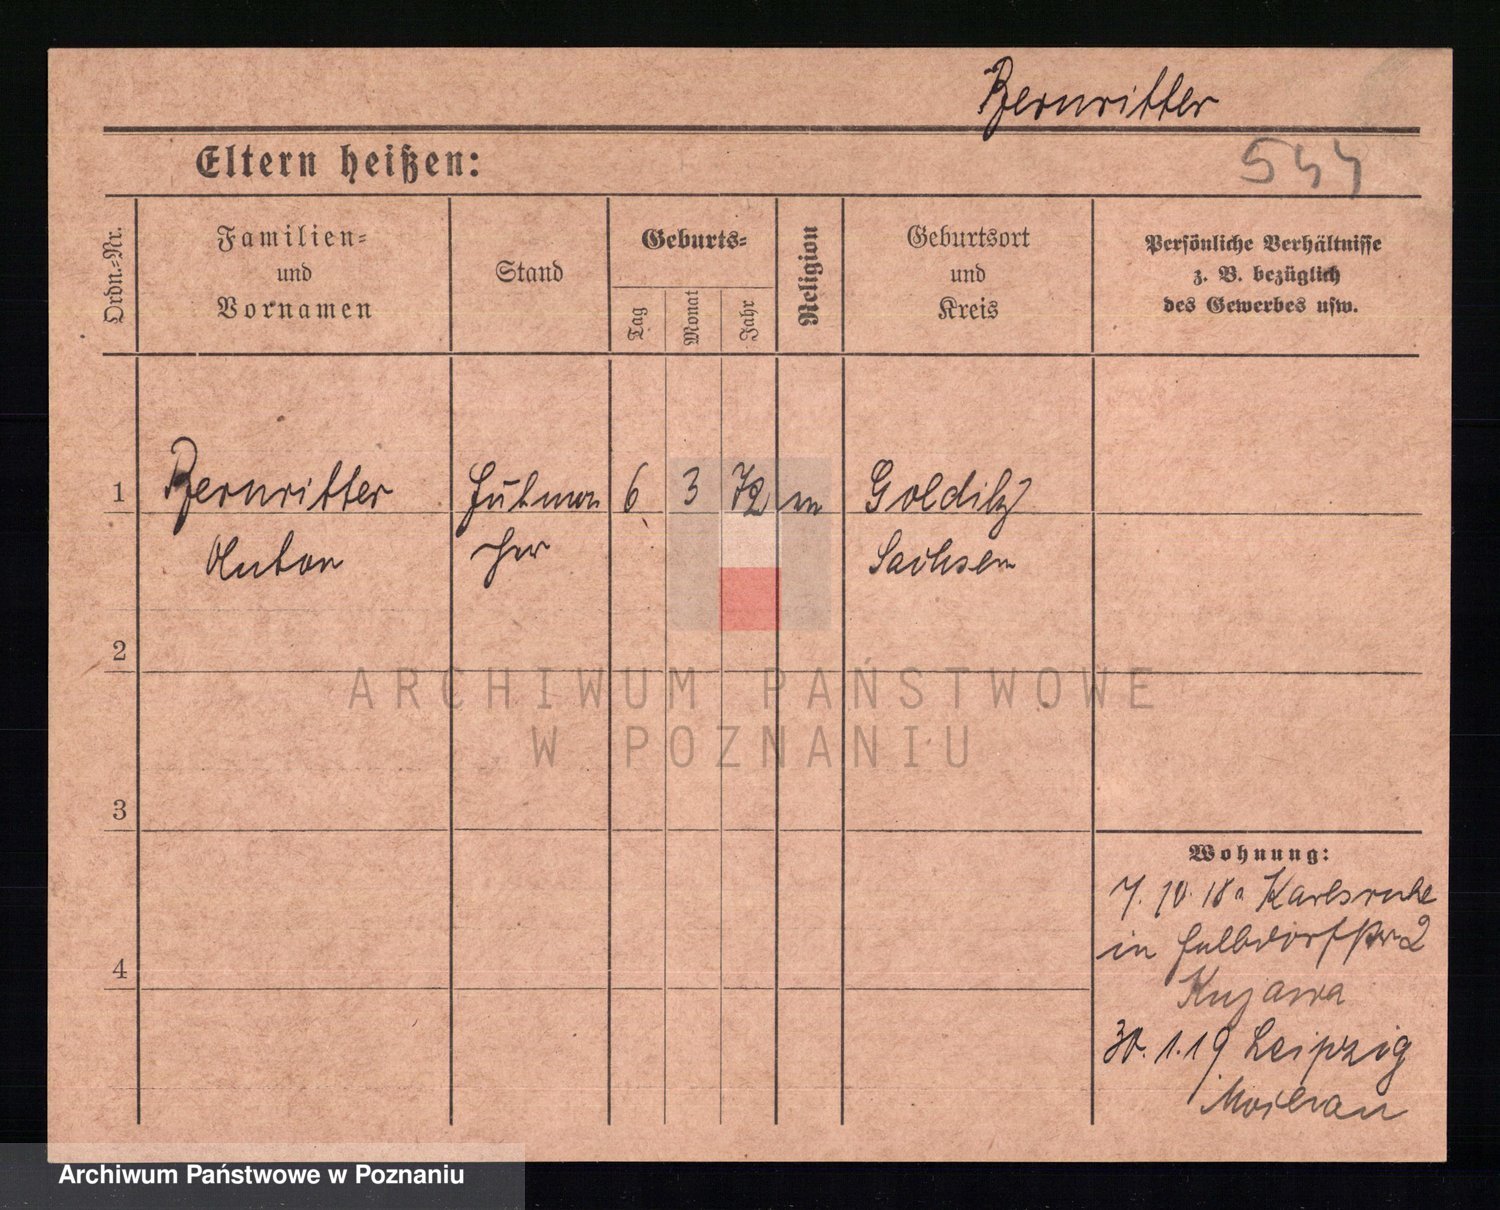 Bernritter
Eltern heißen:
544
Ordn.=Nr.
Familien=
und
Vornamen
Stand
Geburts=
Tag
Monat
Jahr
Religion
Geburtsort
und
Kreis
Persönliche Verhältnisse
z. B. bezüglich
des Gewerbes usw.
1
Bernritter
Anton
Hutma
cher
6
3
72
Golditz
Sachsen
2
3
4
Wohnung:
7. 10. 18 Karlsruhe
in 2
Kujawa
30. 1. 19 Leipzig
ARCHIWUM PAŃSTWOWE
W POZNANIU
Archiwum Państwowe w Poznaniu